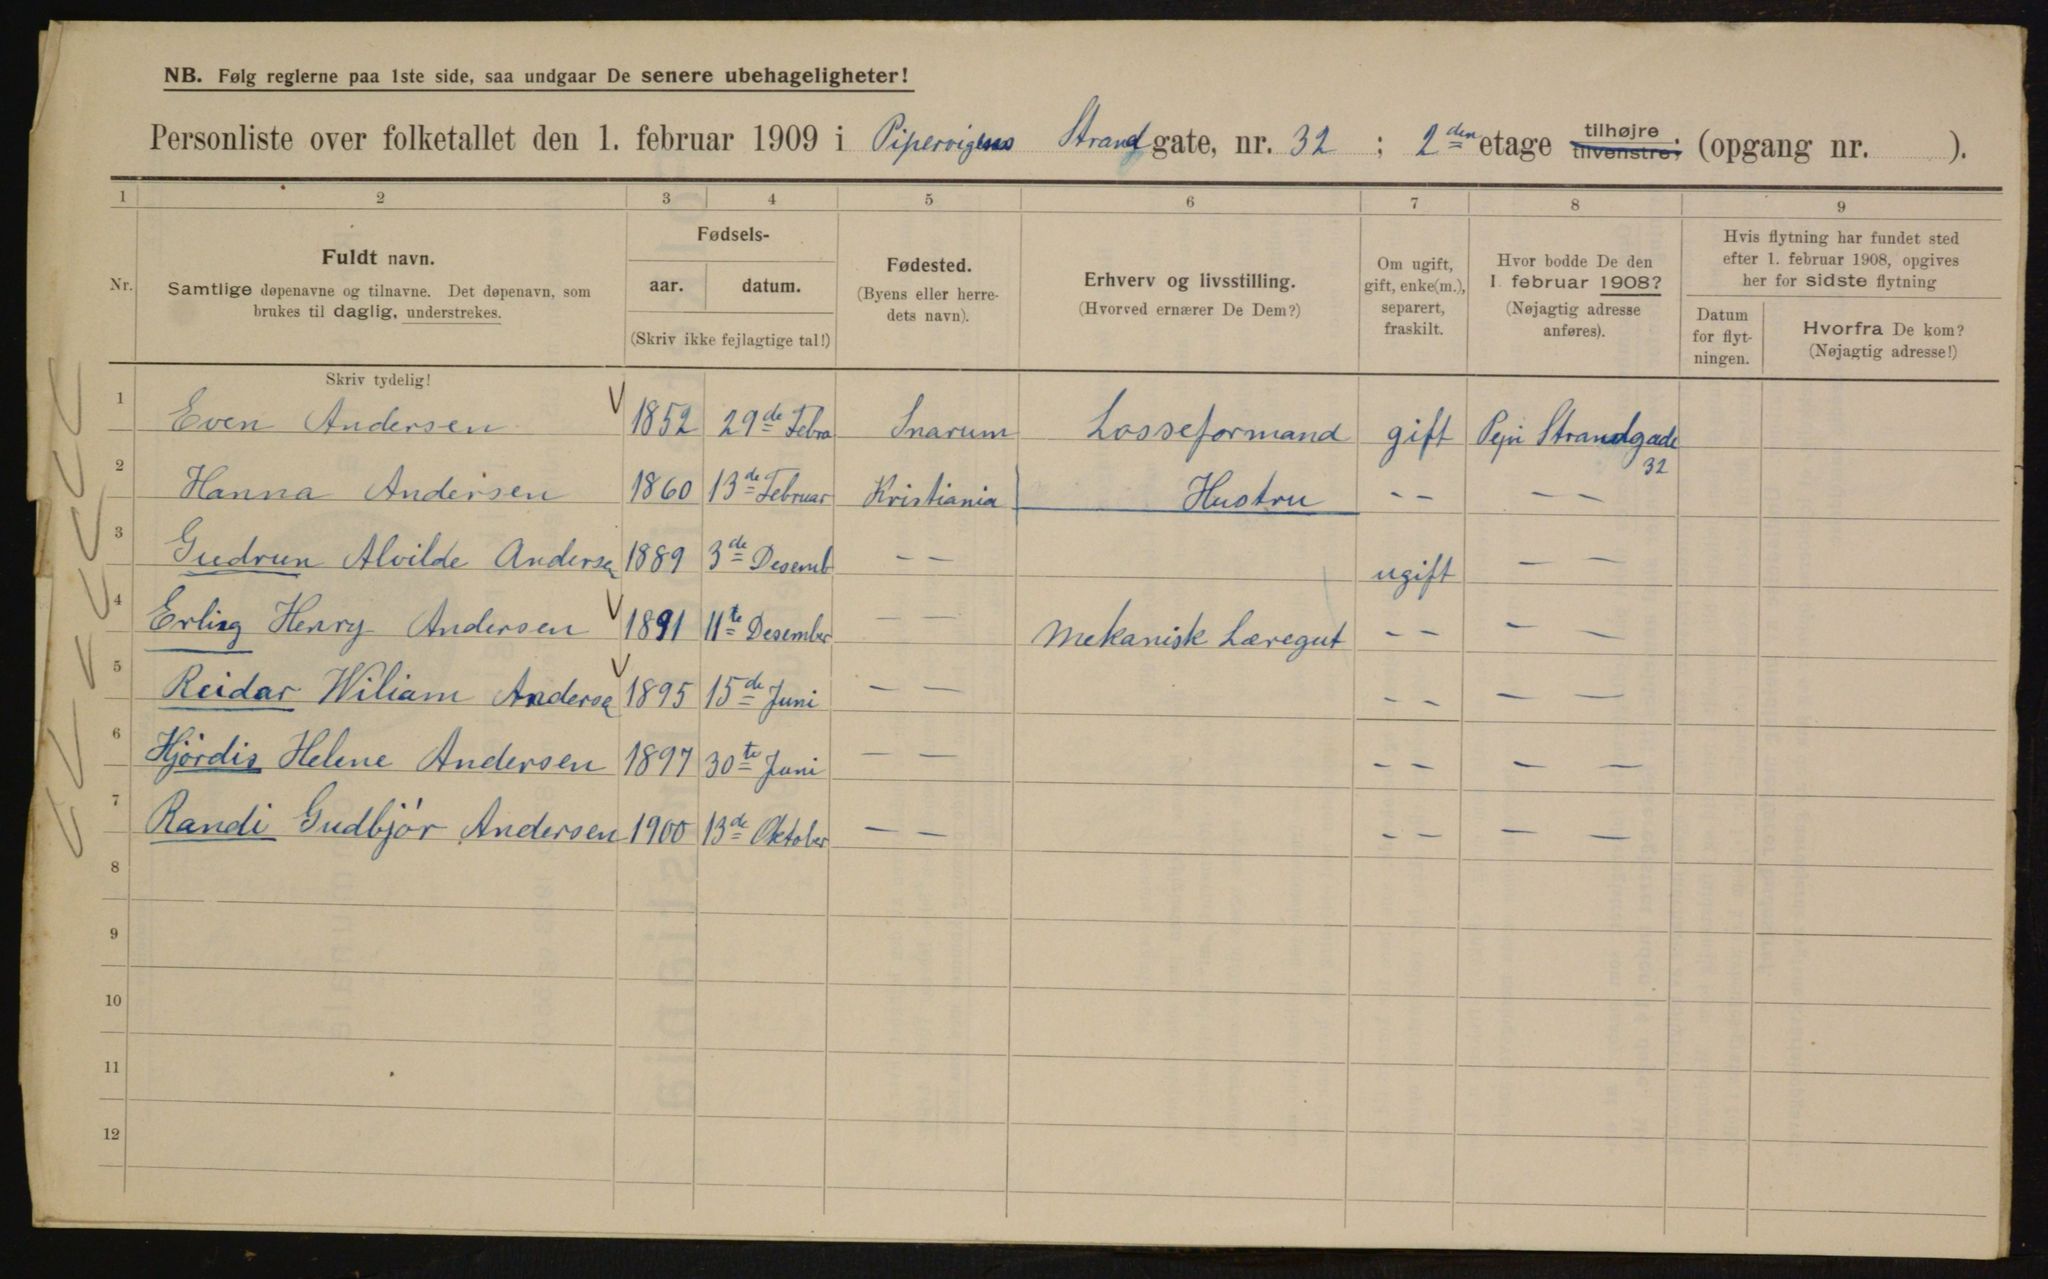 NB. Følg reglerne paa 1ste side, saa undgaar De senere ubehageligheter!
Personliste over folketallet den 1. februar 1909 i Pipervigens Strand gate, nr. 32 ; 2den etage tilhøjre tilvenstre; (opgang nr. ).
1 2 3 4 5 6 7 8 9
Nr.
Fuldt navn.
Samtlige døpenavne og tilnavne. Det døpenavn, som
brukes til daglig, understrekes.
Skriv tydelig!
Fødsels-
aar. datum.
(Skriv ikke fejlagtige tal!)
Fødested.
(Byens eller herre-
dets navn).
Erhverv og livsstilling.
(Hvorved ernærer De Dem?)
Om ugift,
gift, enke(m.),
separert,
fraskilt.
Hvor bodde De den
1. februar 1908?
(Nøjagtig adresse
anføres).
Hvis flytning har fundet sted
efter 1. februar 1908, opgives
her for sidste flytning
Datum
for flyt-
ningen.
Hvorfra De kom?
(Nøjagtig adresse!)
1 Even Andersen 1852 29de Febra Snarum Losseformand gift Strandgade 32
2 Hanna Andersen 1860 13de Februar Kristiania Hustru – – – –
3 Gudrun Alvilde Andersen 1889 3de Desemb – – ugift – –
4 Erling Henry Andersen 1891 11te Desember – – Mekanisk Læregut – – – –
5 Reidar Wiliam Andersen 1895 15de Juni – – – – – –
6 Hjørdis Helene Andersen 1897 30te Juni – – – – – –
7 Randi Gudbjór Andersen 1900 13de Oktober – – – – – –
8
9
10
11
12